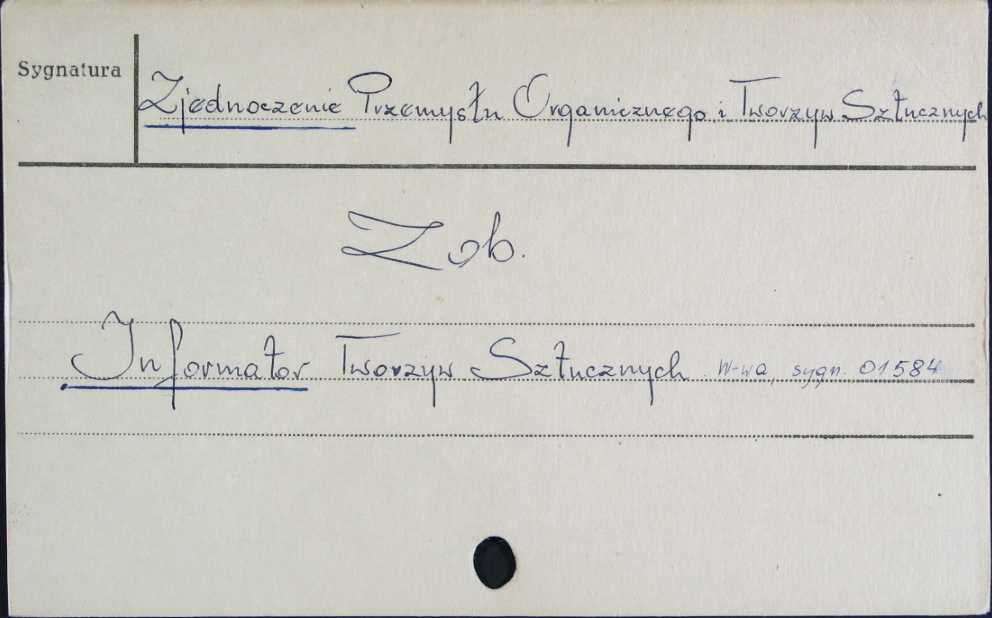 Sygnatura
Zjednoczenie Przemysłu Organicznego i Tworzyw Sztucznych
Zob.
Informator Tworzyw Sztucznych W-wa, sygn. 01584